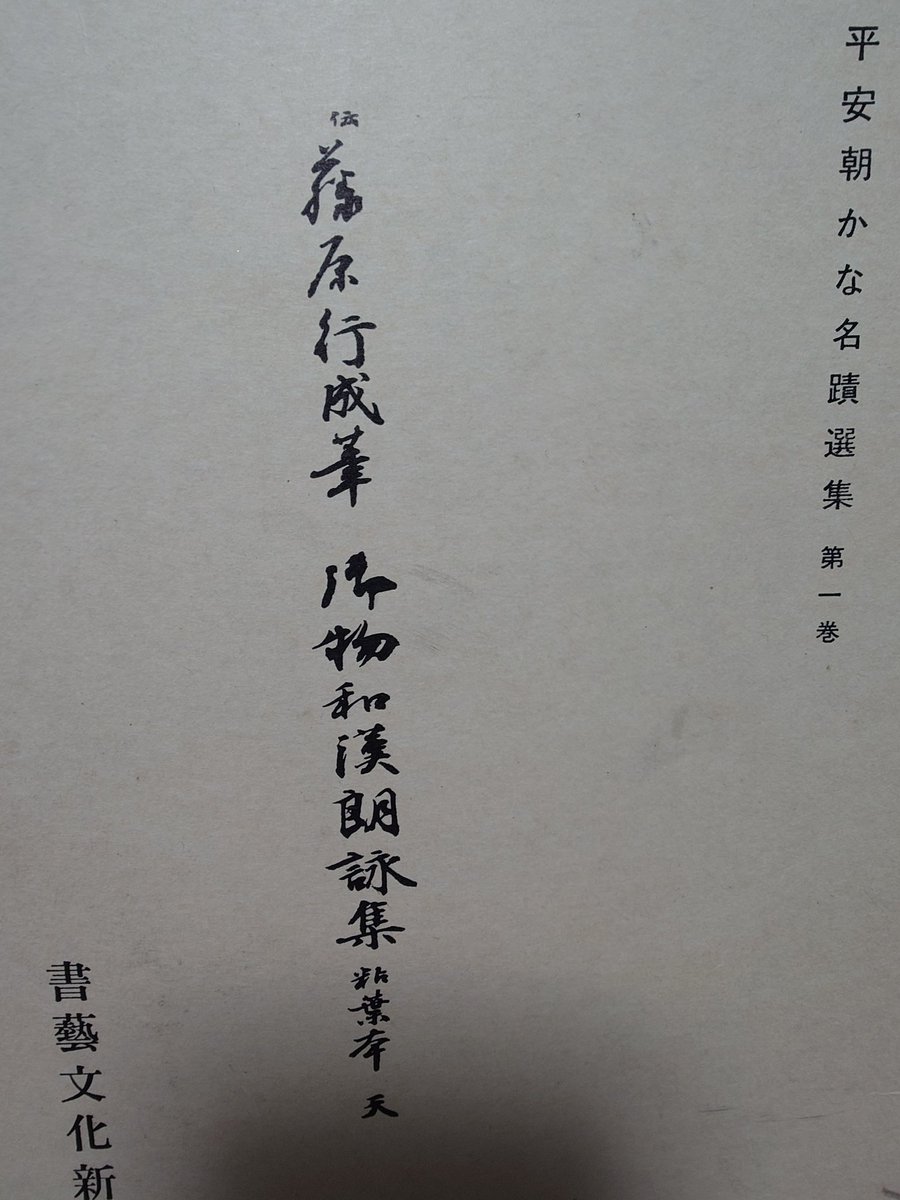 平安朝かな名蹟選集 第一巻
伝 藤原行成筆 御物和漢朗詠集 粘葉本 天
書藝文化新